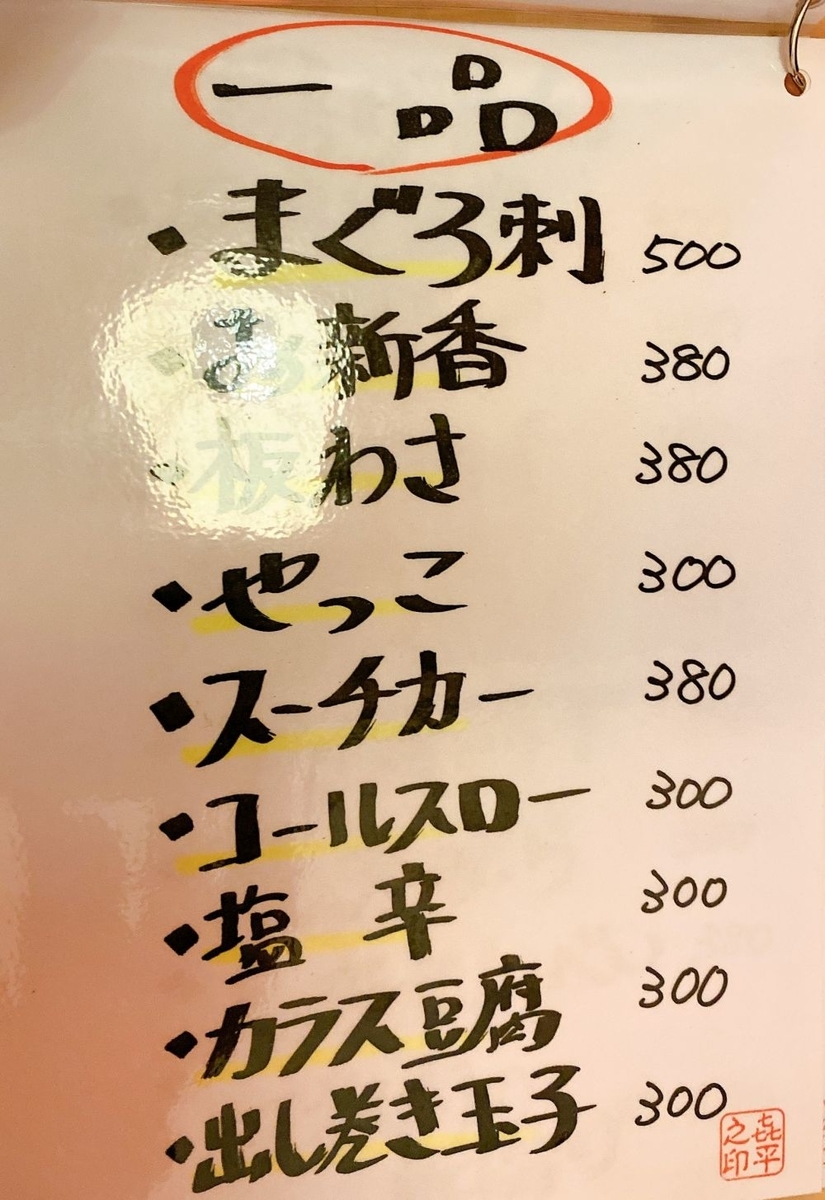 一品
・まぐろ刺 500
・お新香 380
・板わさ 380
・やっこ 300
・スーチカー 380
・コールスロー 300
・塩辛 300
・カラス豆腐 300
・出し巻き玉子 300
㐂平
之印